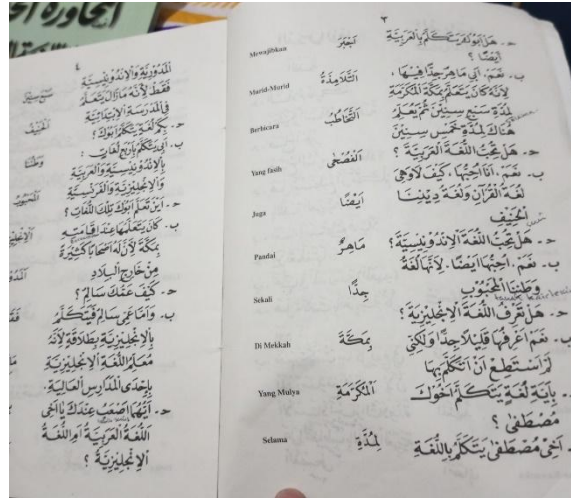 ٣
ح - هَلْ أَبُوْكَ يَتَكَلَّمُ بِالْعَرَبِيَّةِ
أَيْضًا ؟
ب - نَعَمْ، أَبِي مَاهِرٌ جِدًّا فِيْهَا،
لِأَنَّهُ كَانَ يَتَعَلَّمُ بِمَكَّةَ الْمُكَرَّمَةِ
لِمُدَّةِ سَبْعِ سِنِيْنَ ثُمَّ يُعَلِّمُ
هُنَاكَ لِمُدَّةِ خَمْسِ سِنِيْنَ
ح - هَلْ تُحِبُّ اللُّغَةَ الْعَرَبِيَّةَ ؟
ب - نَعَمْ، أَنَا أُحِبُّهَا، كَيْفَ لَا وَهِيَ
لُغَةُ الْقُرْآنِ وَلُغَةُ دِيْنِنَا
الْحَنِيْفِ
ح - هَلْ تُحِبُّ اللُّغَةَ الْاِنْدُوْنِيْسِيَّةَ ؟
ب - نَعَمْ، أُحِبُّهَا أَيْضًا، لِأَنَّهَا لُغَةُ
وَطَنِنَا الْمَحْبُوْبِ
ح - هَلْ تَعْرِفُ اللُّغَةَ الْاِنْجِلِيْزِيَّةَ ؟
ب - نَعَمْ أَعْرِفُهَا قَلِيْلًا جِدًّا وَلَكِنِّي
لَمْ أَسْتَطِعْ أَنْ أَتَكَلَّمَ بِهَا
بِأَيَّةِ لُغَةٍ يَتَكَلَّمُ أَخُوْكَ
مُصْطَفَى ؟
أَخِي مُصْطَفَى يَتَكَلَّمُ بِاللُّغَةِ
Mewajibkan
Murid-Murid التَّلَامِذَةُ
Berbicara التَّخَاطُبُ
Yang fasih الْفُصْحَى
Juga أَيْضًا
Pandai مَاهِرٌ
Sekali جِدًّا
Di Mekkah بِمَكَّةَ
Yang Mulya الْمُكَرَّمَةِ
Selama لِمُدَّةِ
٤
الْمَدُوْرِيَّةِ وَالْاِنْدُوْنِيْسِيَّةِ
فَقَطْ لِأَنَّهُ مَازَالَ يَتَعَلَّمُ
فِي الْمَدْرَسَةِ الْاِبْتِدَائِيَّةِ
ح - بِكَمْ لُغَةٍ يَتَكَلَّمُ أَبُوْكَ ؟
ب - أَبِي يَتَكَلَّمُ بِأَرْبَعِ لُغَاتٍ :
بِالْاِنْدُوْنِيْسِيَّةِ وَالْعَرَبِيَّةِ
وَالْاِنْجِلِيْزِيَّةِ وَالْفَرَنْسِيَّةِ
ح - أَيْنَ تَعَلَّمَ أَبُوْكَ تِلْكَ اللُّغَاتِ ؟
ب - كَانَ يَتَعَلَّمُهَا عِنْدَ إِقَامَتِهِ
بِمَكَّةَ لِأَنَّ لَهُ أَصْحَابًا كَثِيْرَةً
مِنْ خَارِجِ الْبِلَادِ
ح - كَيْفَ عَمُّكَ سَالِمْ ؟
ب - وَأَمَّا عَمِّي سَالِمْ فَيَتَكَلَّمُ
بِالْاِنْجِلِيْزِيَّةِ بِطَلَاقَةٍ لِأَنَّهُ
مُعَلِّمُ اللُّغَةِ الْاِنْجِلِيْزِيَّةِ
بِإِحْدَى الْمَدَارِسِ الْعَالِيَةِ.
ح - أَيُّهُمَا أَصْعَبُ عِنْدَكَ يَا أَخِي
اللُّغَةُ الْعَرَبِيَّةُ أَمِ اللُّغَةُ
الْاِنْجِلِيْزِيَّةُ ؟
سَبْعَ سِنِيْنَ
الْحَنِيْفِ
وَطَنِنَا
الْمَحْبُوْبِ